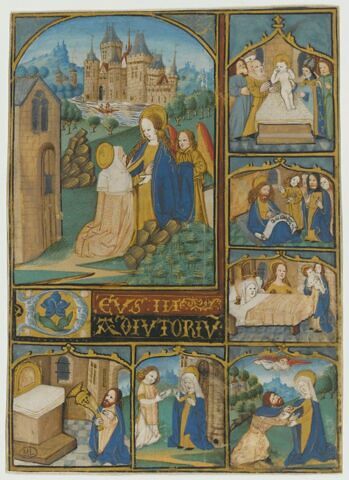 DEVS IN
ADIVTORIV